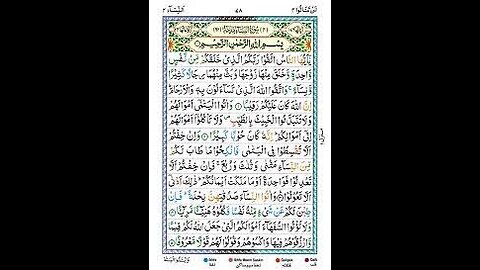 لَنْ تَنَالُوا ٤ ٧٨ اَلنِّسَآء ٤
بِسْمِ اللّٰهِ الرَّحْمٰنِ الرَّحِيْمِ
يٰۤاَيُّهَا النَّاسُ اتَّقُوْا رَبَّكُمُ الَّذِيْ خَلَقَكُمْ مِّنْ نَّفْسٍ
وَّاحِدَةٍ وَّخَلَقَ مِنْهَا زَوْجَهَا وَبَثَّ مِنْهُمَا رِجَالًا كَثِيْرًا
وَّنِسَآءً ۚ وَاتَّقُوا اللّٰهَ الَّذِيْ تَسَآءَلُوْنَ بِهٖ وَالْاَرْحَامَ ؕ
اِنَّ اللّٰهَ كَانَ عَلَيْكُمْ رَقِيْبًا وَاٰتُوا الْيَتٰمٰۤى اَمْوَالَهُمْ
وَلَا تَتَبَدَّلُوا الْخَبِيْثَ بِالطَّيِّبِ وَلَا تَاْكُلُوْۤا اَمْوَالَهُمْ
اِلٰۤى اَمْوَالِكُمْ ؕ اِنَّهٗ كَانَ حُوْبًا كَبِيْرًا وَاِنْ خِفْتُمْ
اَلَّا تُقْسِطُوْا فِى الْيَتٰمٰى فَانْكِحُوْا مَا طَابَ لَكُمْ
مِّنَ النِّسَآءِ مَثْنٰى وَثُلٰثَ وَرُبٰعَ ۚ فَاِنْ خِفْتُمْ اَلَّا
تَعْدِلُوْا فَوَاحِدَةً اَوْ مَا مَلَكَتْ اَيْمَانُكُمْ ؕ ذٰلِكَ اَدْنٰۤى
اَلَّا تَعُوْلُوْا وَاٰتُوا النِّسَآءَ صَدُقٰتِهِنَّ نِحْلَةً ؕ فَاِنْ
طِبْنَ لَكُمْ عَنْ شَيْءٍ مِّنْهُ نَفْسًا فَكُلُوْهُ هَنِيْٓـئًا مَّرِيْٓـئًا
وَلَا تُؤْتُوا السُّفَهَآءَ اَمْوَالَكُمُ الَّتِيْ جَعَلَ اللّٰهُ لَكُمْ قِيٰمًا
وَّارْزُقُوْهُمْ فِيْهَا وَاكْسُوْهُمْ وَقُوْلُوْا لَهُمْ قَوْلًا مَّعْرُوْفًا
وَابْتَلُوا الْيَتٰمٰى